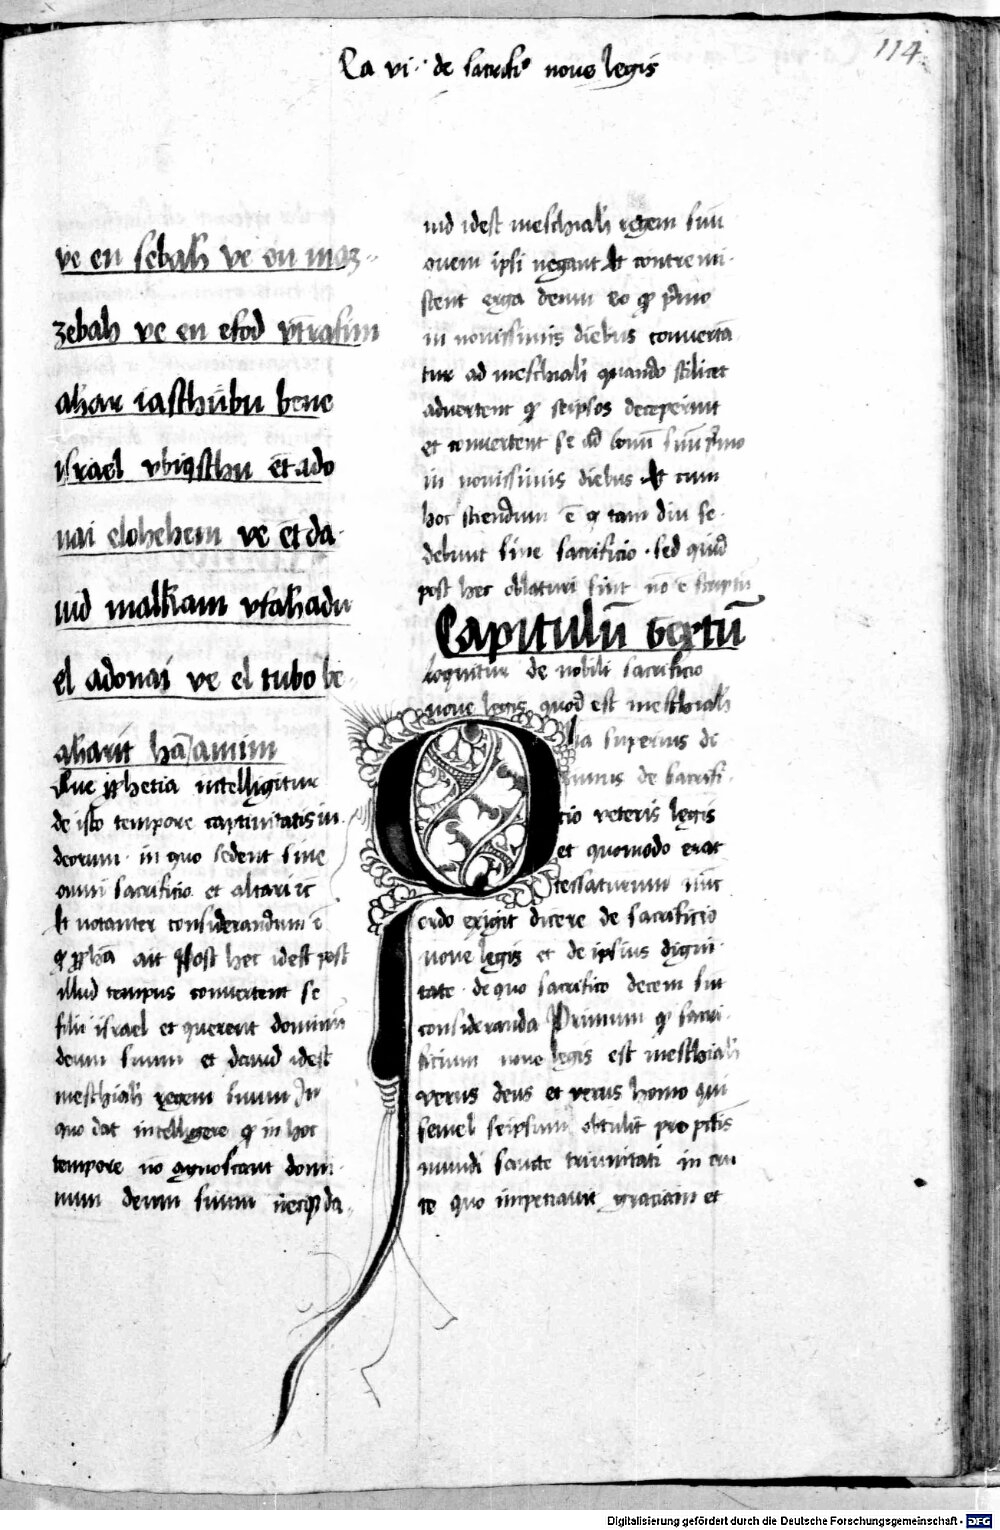 Ca vi · de sacrifi° noue legis
114
ve en sebah ve en maz
zebah ve en efod vtrafim
ahar iasthubu bene
israel vbiqsthu et ado
nai elohehem ve et da
uid malkam vfahadu
el adonai ve el tubo be
aharit haiamim
Que pphetia intelligitur
de isto tempore captiuitatis iu
deorum · in quo sedent sine
omni sacrificio et altari et
Et notanter considerandum ē
qp ppha ait Post hec idest post
illud tempus conuertent se
filii israel et querent dominū
deum suum et dauid idest
meschiah regem suum In
quo dat intelligere qp in hoc
tempore no agnoscant domi
num deum suum necqp da
uid idest meschiah regem suū
quem ipsi negant Et contremi
scent erga deum eo qp p̄mo
in nouissimis diebus conuertā
tur ad meschiah quando scilicet
aduertent qp seipsos deceperint
et conuertent se ad bonū suū p̄mo
in nouissimis diebus Et cum
hoc sciendum ē q tam diu se
debunt sine sacrificio · sed quid
post hec oblaturi sint nō e scriptū
Capitulū sextū
loquitur de nobili sacrificio
noue legis quod est meschiah
Quia superius de
ximus de sacrifi
cio veteris legis
et quomodo erat
cessaturum nūc
ordo exigit dicere de sacrificio
noue legis et de ipsius digni
tate · de quo sacrifico decem sūt
consideranda Primum qp sacri
ficium noue legis est meschiah
verus deus et verus homo qui
semel seipsum obtulit pro pctis
mundi sancte trinitati in cru
ce quo impetrauit graciam et
Digitalisierung gefördert durch die Deutsche Forschungsgemeinschaft - DFG